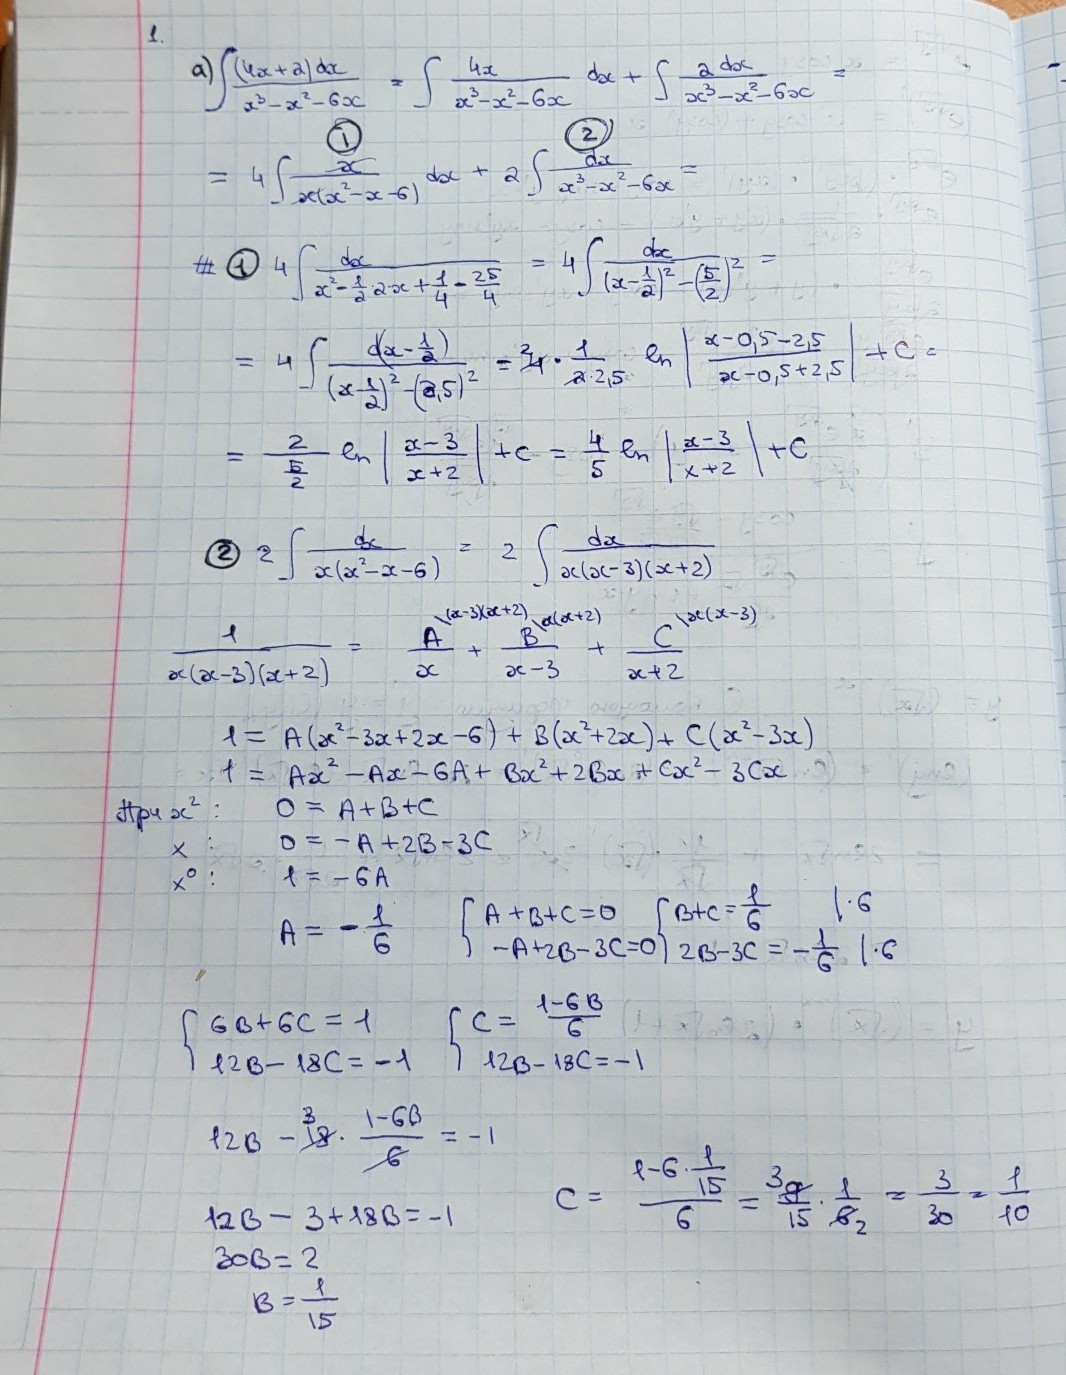 1.
а) ∫ (4x+2)dx / (x³-x²-6x) = ∫ 4x / (x³-x²-6x) dx + ∫ 2dx / (x³-x²-6x) =
① ②
= 4∫ x / (x(x²-x-6)) dx + 2∫ dx / (x³-x²-6x) =
# ① 4∫ dx / (x² - 1/2·2x + 1/4 - 25/4) = 4∫ dx / ((x-1/2)² - (5/2)²) =
= 4∫ d(x-1/2) / ((x-1/2)² - (2,5)²) = ²4 · 1/(2·2,5) ln |(x-0,5-2,5)/(x-0,5+2,5)| + C =
= 2/(5/2) ln |(x-3)/(x+2)| + C = 4/5 ln |(x-3)/(x+2)| + C
② 2∫ dx / (x(x²-x-6)) = 2∫ dx / (x(x-3)(x+2))
1 / (x(x-3)(x+2)) = A/x \(x-3)(x+2) + B/(x-3) \x(x+2) + C/(x+2) \x(x-3)
1 = A(x²-3x+2x-6) + B(x²+2x) + C(x²-3x)
1 = Ax² - Ax - 6A + Bx² + 2Bx + Cx² - 3Cx
При x²: 0 = A+B+C
x : 0 = -A+2B-3C
x⁰: 1 = -6A
A = -1/6 { A+B+C=0 { B+C = 1/6 |·6
-A+2B-3C=0 2B-3C = -1/6 |·6
{ 6B+6C = 1 { C = (1-6B)/6
12B-18C = -1 12B-18C = -1
12B - ³18 · (1-6B)/6 = -1
12B - 3 + 18B = -1
30B = 2
B = 1/15
C = (1-6·1/15)/6 = ³9/15 · 1/6₂ = 3/30 = 1/10